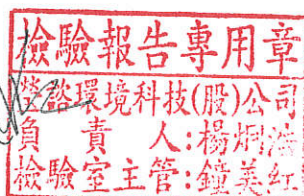 檢驗報告專用章
環境科技(股)公司
負責人:楊炯
檢驗室主管:鐘美紅